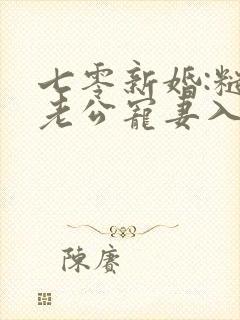 七零新婚:糙
老公寵妻入
陳賡